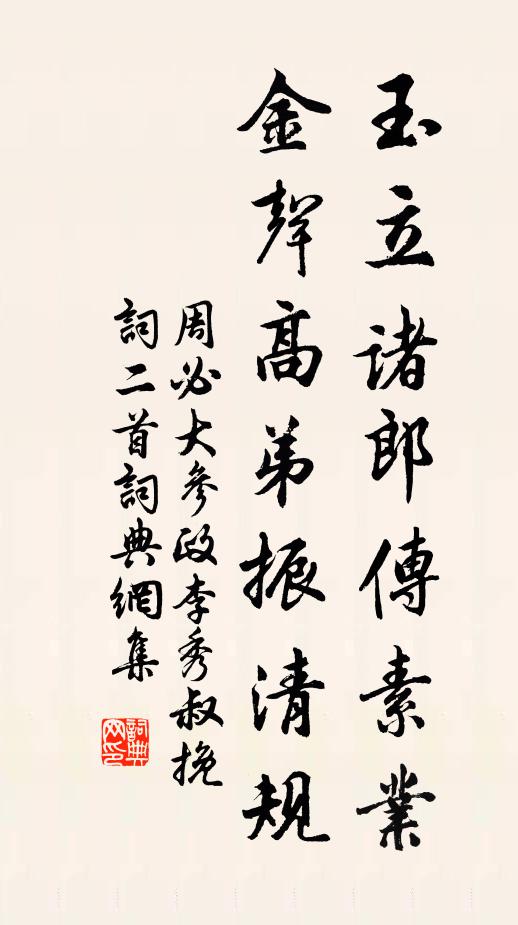 玉立诸郎傳素業
金聲高弟振清規
周必大參政李秀叔挽
詞二首詞典網集
詞典网印